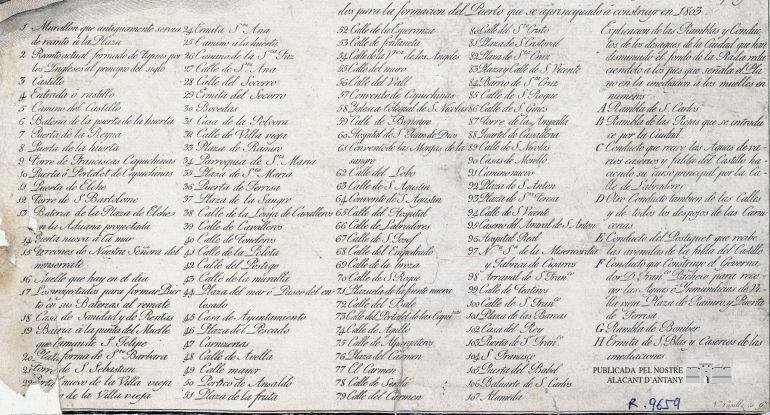 dos para la formacion del Puerto que se á principiado á construyr en 1803.
1 Murallon que antiguamente servia
de recinto á la Plaza
2 Recinto actual formado de Tapias por
los Yngleses al principio del siglo
3 Castillo
4 Entrada ó rastillo
5 Camino del Castillo
6 Bateria de la puerta de la huerta
7 Puerta de la Reyna
8 Puerta de la huerta
9 Torre de Franceses Capuchinas
10 Puerta ó Portalet de Capuchinas
11 Puerta de Elche
12 Torre de S. Bartolome
13 Bateria de la Plaza de Elche
en la Aduana proyectada
14 Puerta nueva á la mar
15 Torreones de Nuestra Señora del
monserrate
16 Muelle que hay en el dia
17 Los proyectados para formar Puer
to con sus Baterias al remate
18 Casa de Sanidad y de Rentas
19 Bateria á la punta del Muelle
que llaman de S. Felipe
20 Plata forma de Sta Barbara
21 Torre de S. Sebastian
Puerta nueva de la Villa vieja
de la Villa vieja
24 Ermita Sta Ana
25 Camino á la huerta
26 Camino de la Sta Faz
27 Calle de Sta Ana
28 Calle del Socorro
29 Ermita del Socorro
30 Bovedas
31 Casa de la Polvora
32 Calle de Villa vieja
33 Plaza de Ramiro
34 Parroquia de Sta Maria
35 Plaza de Sta Maria
36 Puerta de Ferrisa
37 Plaza de la Sangre
38 Calle de la Lonja de Cavalleros
39 Calle de Cavalleros
40 Calle de Toneleros
41 Calle de la Pelota
42 Calle del Postigo
43 Calle de la muralla
44 Plaza del mar ó Paseo del en
losado
45 Casa de Ayuntamiento
46 Plaza del Pescado
47 Carnicerias
48 Calle de Avella
49 Calle mayor
50 Portico de Ansaldo
51 Plaza de la fruta
52 Calle de la Esperanza
53 Calle de fontaneta
54 Calle de la Vgen de los Angeles
55 Calle del muro
56 Calle del Vall
57 Convento de Capuchinas
58 Yglesia Colegial de S. Nicolas
59 Calle
60 Hospital de S. Juan de Dios
61 Convento de las Monjas de la
sangre
62 Calle del Lobo
63 Calle de S. Agustin
64 Convento de S. Agustin
65 Calle del Hospital
66 Calle de Labradores
67 Calle de S. Josef
68 Calle del Empedrado
69 Calle de la broza
70 Calle de S. Roque
71 Plazuela de la fuente nueva
72 Calle del Bale
73 Calle del Portalet de las Capuchinas
74 Calle de Argollo
75 Calle de Alpargateros
76 Plaza del Carmen
77 El Carmen
78 Calle de
79 Calle del Carmen
80 Calle del Sto Cristo
81 Plaza de S. Cristoval
82 Plaza de Sta Cruz
83 Plaza y Calle de S. Vicente
84 Barrio de Sta Cruz
85 Calle de S. Roque
86 Calle de S. Gines
87 Torre de la Ampolla
88 Quartel de Cavalleria
89 Calle de S. Nicolas
90 Casas de Morello
91 Camino nuevo
92 Plaza de S. Anton
93 Plaza de Sta Teresa
94 Calle de S. Vicente
95 Caserio del Arraval de S. Anton
96 Hospital Real
97 Nra Sra de la Misericordia
y Fabrica de Cigarros
98 Arraval de S. Franco
99 Calle de Teatinos
100 Calle de S. Franco
101 Plaza de las Barcas
102 Casa del Rey
103 Puerta de S. Franco
104 S. Francisco
105 Puerta del Babel
106 Baluarte de S. Carlos
107 Alameda
Explicacion de las Ramblas y Conduc
tos de los desagues de la Ciudad que han
disminuido el fondo de la Rada redu
ciendolo á los pies que señala el Pla
no en la imediacion á los muelles en
numeros
A Rambla de S. Carlos
B Rambla de las Rojas que se introdu
ce por la Ciudad
C Conducto que recoje las Aguas de va
rios caserios y falda del Castillo ha
ciendo su curso principal por la Ca
lle de Labradores
D Otro Conducto tambien de las Calles
y de todos los despojos de las Carni
cerias
E Conducto del Postiguet que recibe
las avenidas de la falda del Castillo
F Conducto que Construyo el Governa
dor Dn Franco Pacheco para reco
ger las Aguas é Ynmundicias de Vi
lla vieja, Plaza de Ramiro, y Puerta
de Ferrisa
G Rambla de Bonber
H Ermita de S. Blas y Caserios de las
imediaciones
PUBLICADA PEL NOSTRE
ALACANT D'ANTANY
R. 9659